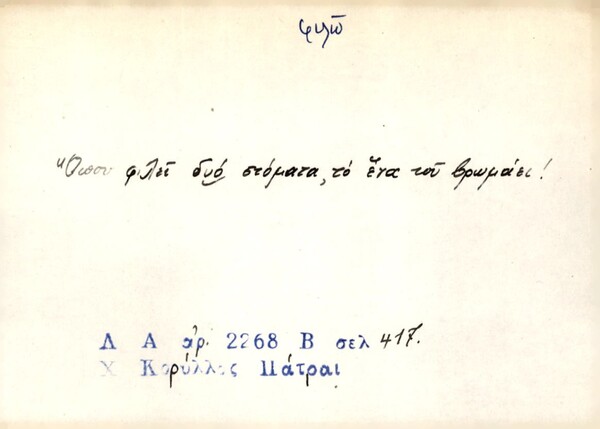 φιλῶ
"Ὅπου φιλεῖ δυό στόματα, τό ἕνα τοῦ βρωμάει!
Λ Α ἀρ. 2268 Β σελ 417.
Χ Κορύλλος Πάτραι